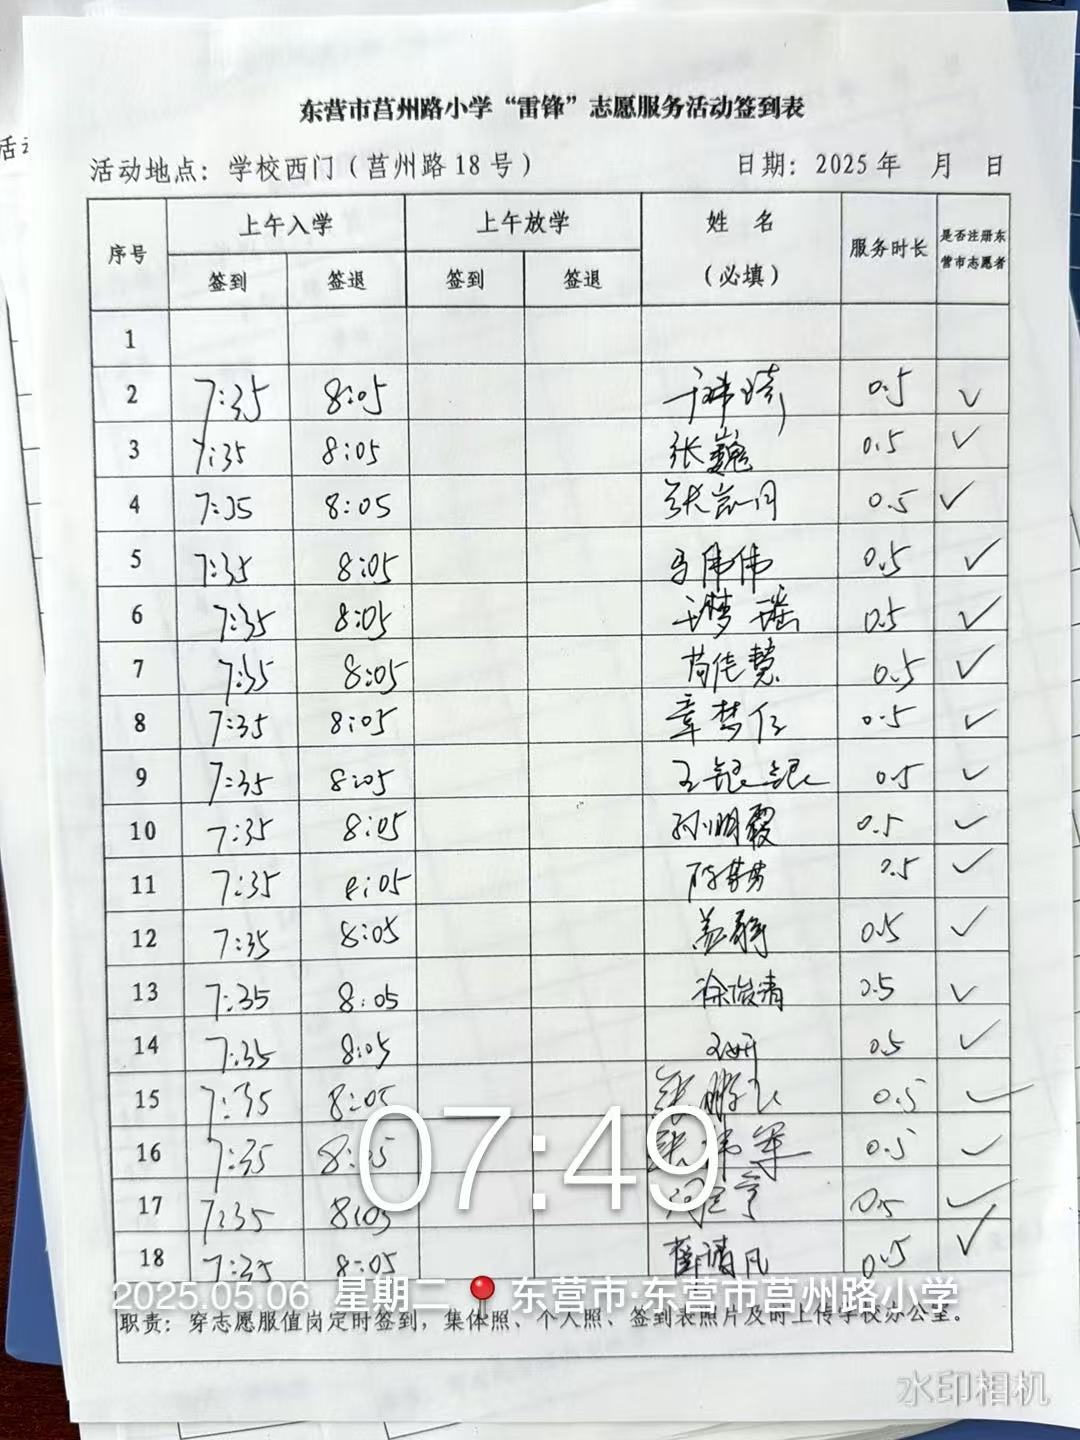 东营市莒州路小学“雷锋”志愿服务活动签到表
活动地点：学校西门（莒州路18号） 日期：2025年 月 日
序号 上午入学 上午放学 姓 名（必填） 服务时长 是否注册东营市志愿者
签到 签退 签到 签退
1
2 7:35 8:05 0.5 ✓
3 7:35 8:05 张巍 0.5 ✓
4 7:35 8:05 张凯月 0.5 ✓
5 7:35 8:05 马伟伟 0.5 ✓
6 7:35 8:05 王梦瑶 0.5 ✓
7 7:35 8:05 苟佳慧 0.5 ✓
8 7:35 8:05 章梦仪 0.5 ✓
9 7:35 8:05 王银银 0.5 ✓
10 7:35 8:05 孙明霞 0.5 ✓
11 7:35 8:05 0.5 ✓
12 7:35 8:05 盖静 0.5 ✓
13 7:35 8:05 徐俊清 0.5 ✓
14 7:35 8:05 王妍 0.5 ✓
15 7:35 8:05 张鹏飞 0.5 ✓
16 7:35 8:05 张伟军 0.5 ✓
17 7:35 8:05 0.5 ✓
18 7:35 8:05 0.5 ✓
07:49
2025.05.06 星期二 东营市·东营市莒州路小学
职责：穿志愿服值岗定时签到，集体照、个人照、签到表照片及时上传学校办公室。
水印相机